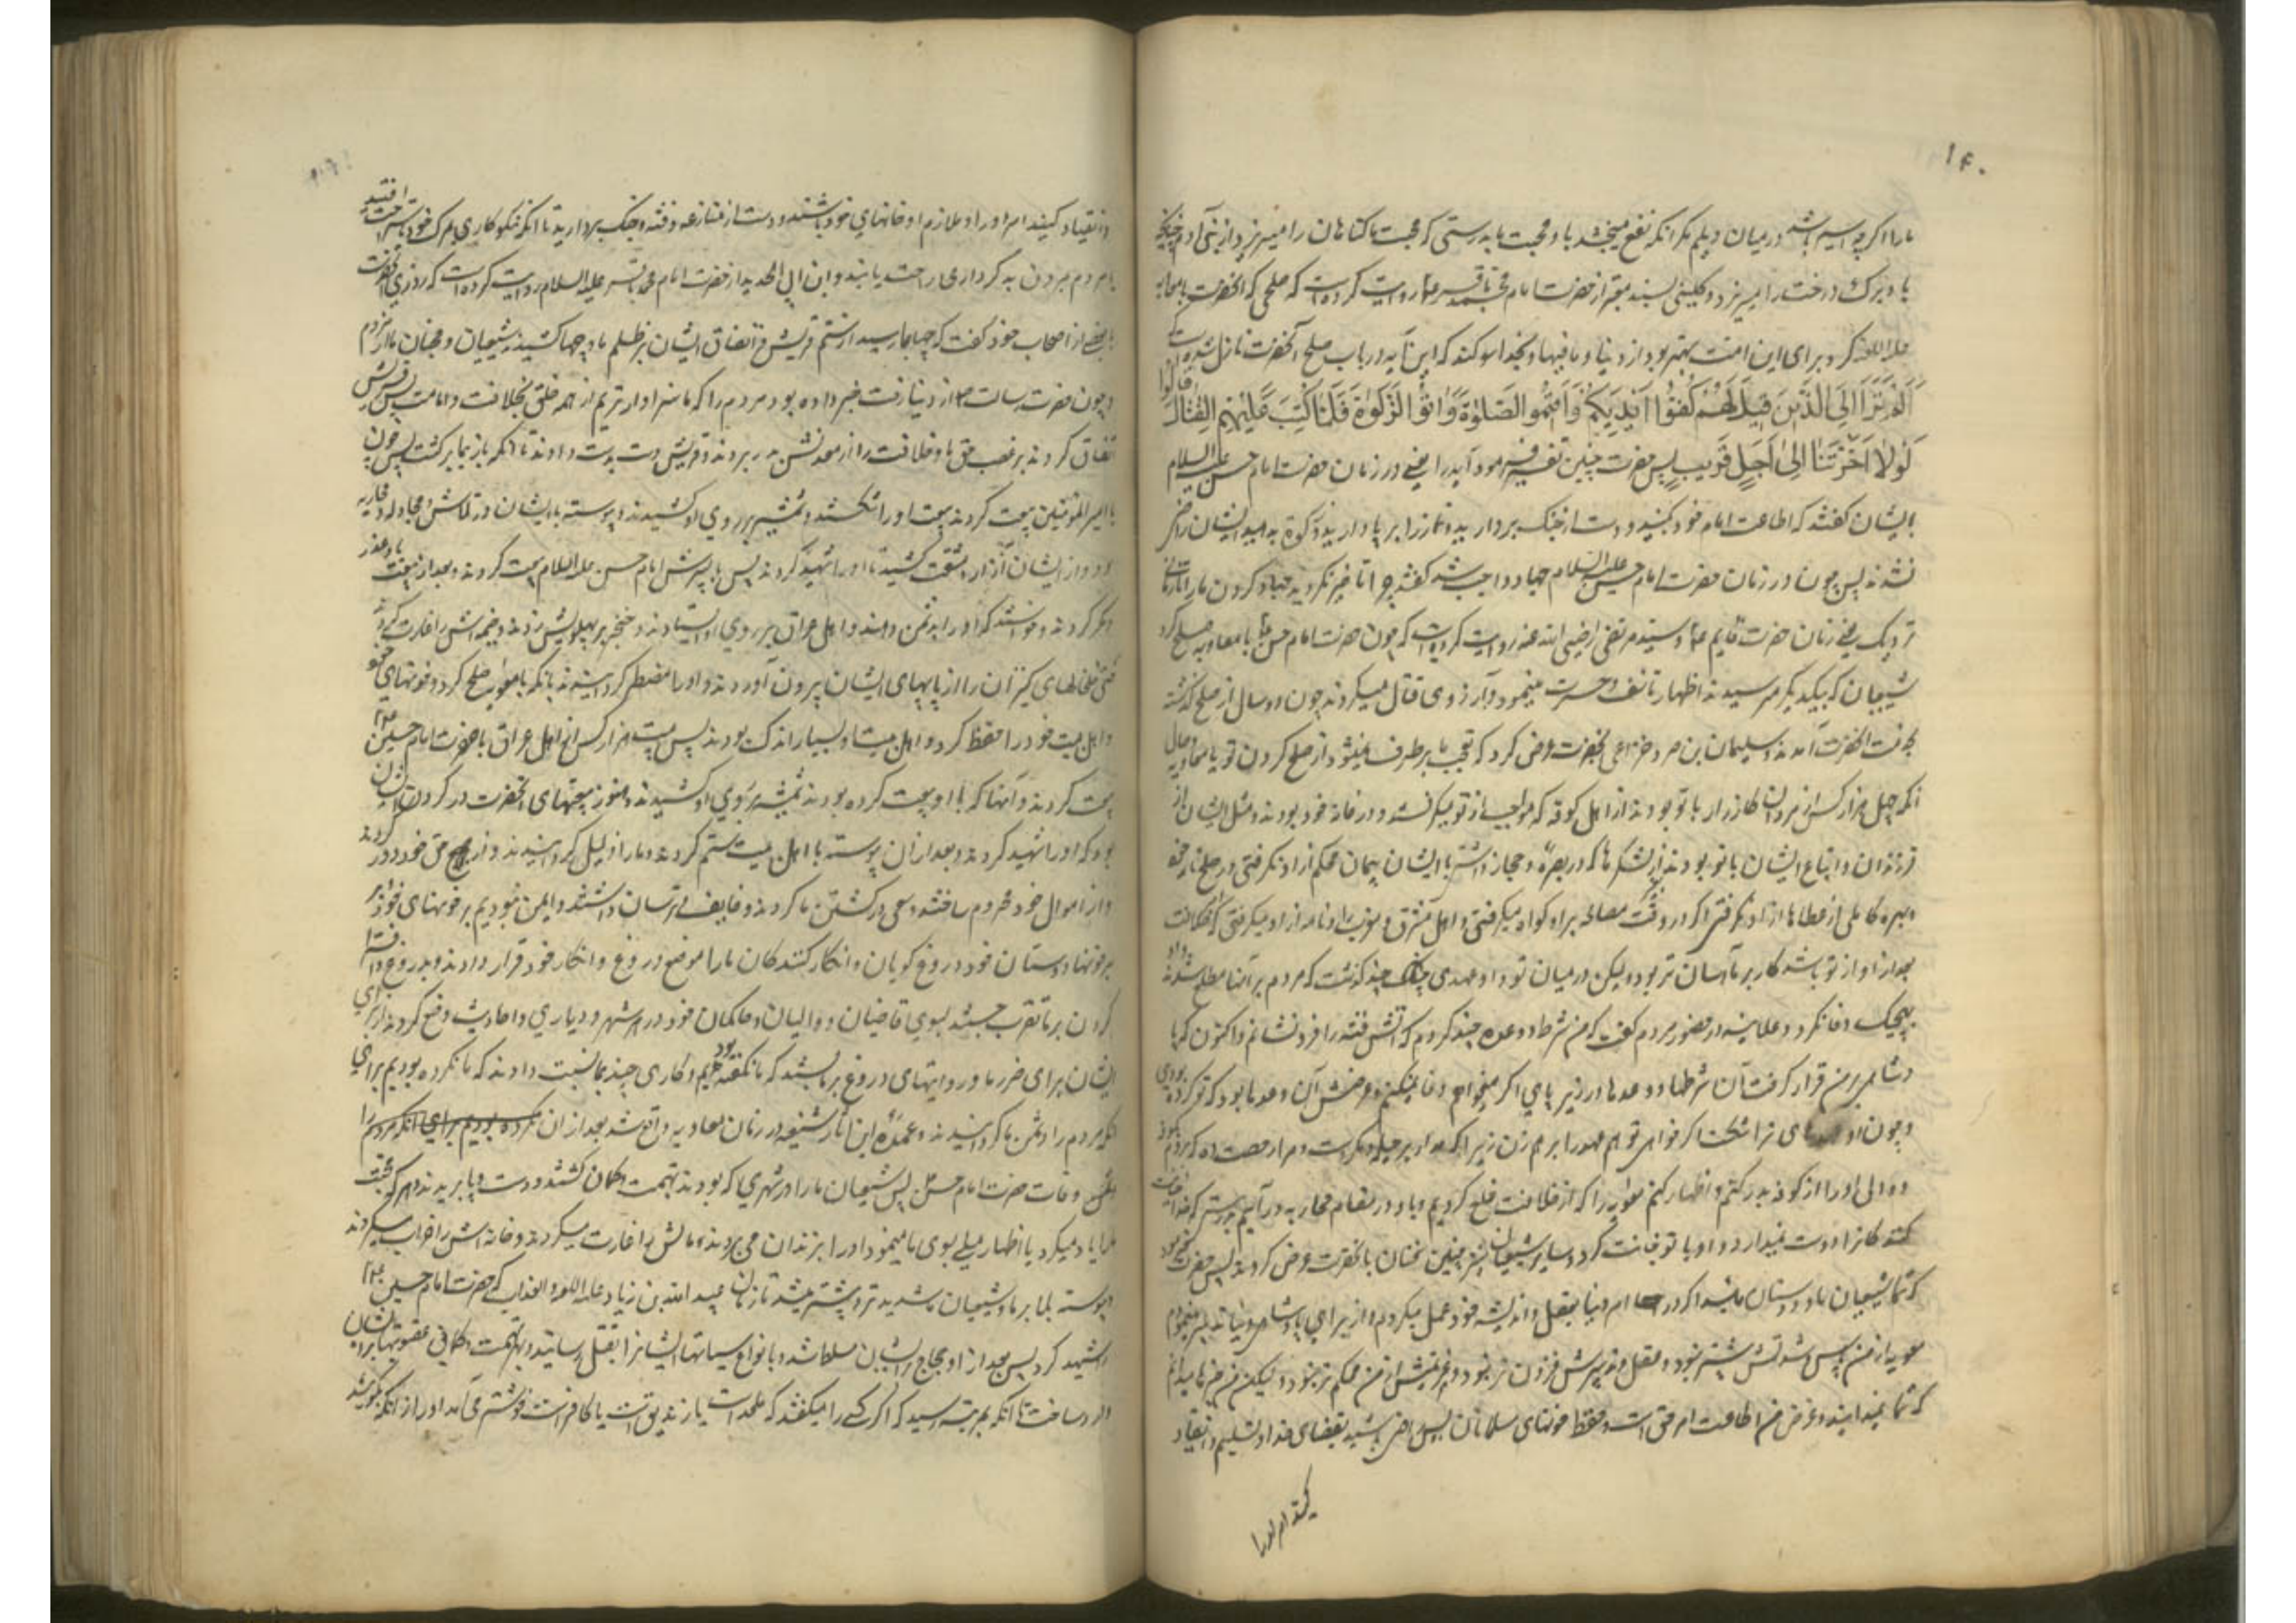 ۱۴۰
ما را اگرچه اسیر باشد در میان دیلم مگر آنکه نفع میبخشد باو محبت ما بدرستی که محبت ما کناهان را میریزد از بنی آدم چنانکه
باد برک درخت را میریزد و کلینی بسند معتبر از حضرت امام محمد باقر ع روایت کرده است که صلحی که آنحضرت با معاویه
علیه اللعنه کرد برای این امت بهتر بود از دنیا و ما فیها و بخدا سوکند که این آیه در باب صلح آنحضرت نازل شده است
أَلَمْ تَرَ إِلَى الَّذِينَ قِيلَ لَهُمْ كُفُّوا أَيْدِيَكُمْ وَأَقِيمُوا الصَّلٰوةَ وَآتُوا الزَّكٰوةَ فَلَمَّا كُتِبَ عَلَيْهِمُ الْقِتَالُ قالوا
لَوْلَا أَخَّرْتَنَا إِلَىٰ أَجَلٍ قَرِيبٍ پس حضرت چنین تفسیر فرمود آیه را یعنی در زمان حضرت امام حسن علیه السلام
بایشان کفتند که اطاعت امام خود بکنید و دست از جنک بردارید و نماز را بر پا دارید و زکوة بدهید ایشان راضی
نشدند پس چون در زمان حضرت امام حسین علیه السلام جهاد واجب شد کفتند چرا تاخیر نکردید جهاد کردن ما را تا زمان
نزدیک یعنی زمان حضرت قایم ع و سید مرتضی رضی الله عنه روایت کرده است که چون حضرت امام حسن ع با معاویه صلح کرد
شیعیان که بیکدیکر میرسیدند اظهار تاسف و حسرت مینمودند و آرزوی قتال میکردند چون دو سال از صلح کذشته
بخدمت آنحضرت آمدند و سلیمان بن صرد خزاعی بحضرت عرض کرد که تعجب ما بر طرف نمیشود از صلح کردن تو با معاویه و حال
آنکه چهل هزار کس از مردان کارزار با تو بودند از اهل کوفه که مواجب از تو میکرفتند و در خانه خود بودند و مثل ایشان از
فرزندان و اتباع ایشان با تو بودند بغیر لشکرها که در بصره و حجاز داشتی با ایشان پیمان محکم از او نکرفتی در صلح نامه خود
و بهره کاملی از عطاها از او نکرفتی اکر در وقت مصالحه بر او کواه میکرفتی و اهل مشرق و مغرب را و نامه از او میکرفتی که خلافت
بعد از او از تو باشد کار بر ما آسان تر بود ولیکن در میان تو و او عهدی چند کذشت که مردم بر آنها مطلع نشدند
بهیچیک وفا نکرد و علانیه در حضور مردم کفت که من شرطها و وعده چند کردم که آتش فتنه را فرو نشانم و اکنون که ما
و شاهی بر من قرار کرفت آن شرطها و وعده ها در زیر پای
و چون او
و والی او را از کوفه بدر کنم و اظهار کنم معاویه را که از خلافت خلع کردیم و با او در مقام محاربه در آئیم بدرستی که خدا
کنندکانرا دوست نمیدارد و سایر شیعیان نیز چنین سخنان بآنحضرت عرض کردند پس حضرت فرمود
که شما شیعیان ما و دوستان مائید اکر در امر دنیا بعقل و اندیشه خود عمل میکردم و از برای پادشاهی دنیا تدبیر مینمودم
معویه از من بیشتر نبود و عقل و تدبیرش فزون تر نبود و عزیمتش از من محکم تر نبود و لیکن من چیزها میدانم
که شما نمیدانید و غرض من اطاعت امر حق است و حفظ خونهای مسلمانان پس راضی باشید بقضای خدا و تسلیم و انقیاد
و انقیاد کنید امر او را و ملازم او خانهای خود باشید و دست از منازعه و فتنه و جنک بردارید تا آنکه نیکوکاری بمرک خود براحت افتد
یا مردم بمردن بد کرداری راحت یابند و ابن ابی الحدید از حضرت امام محمد باقر علیه السلام روایت کرده است که روزی آنحضرت
با بعضی از اصحاب خود کفت که چها بما رسید از ستم قریش و اتفاق ایشان بر ظلم ما و چها کشیدند شیعیان و محبان ما از مردم
و چون حضرت رسالت از دنیا رفت خبر داده بود مردم را که ما سزاوارتریم از همه خلق بخلافت و امامت پس قریش
اتفاق کردند بر غصب حق ما و خلافت را از معدنش بدر بردند و قریش دست بدست دادند تا آنکه باز بما برکشت پس چون
با امیر المؤمنین بیعت کردند بیعت او را شکستند و شمشیر بر روی او کشیدند و پیوسته با ایشان در تلاش و مجادله و محاربه
بود و از ایشان آزار و مشقت کشید تا او را شهید کردند پس با پسرش امام حسن علیه السلام بیعت کردند و بعد از بیعت با او غدر
و مکر کردند و خواستند که او را بدشمن دهند و اهل عراق بر روی او ایستادند و خنجر بر پهلویش زدند و خیمه اش را غارت کردند
حتی خلخالهای کنیزان را از پاهای ایشان بیرون آوردند و او را مضطر کردانیدند تا آنکه با معویه صلح کرد و خونهای خود
و اهل بیت خود را حفظ کرد و اهل بیت او بسیار اندک بودند پس بیست هزار کس از اهل عراق با حضرت امام حسین ع
بیعت کردند و آنها که با او بیعت کرده بودند شمشیر بر روی او کشیدند و هنوز بیعتهای آنحضرت در کردن ایشان
بود که او را شهید کردند و بعد از آن پیوسته با اهل بیت ستم کردند و ما را ذلیل کردانیدند و از حق خود دور کردند
و از اموال خود محروم ساختند و سعی در کشتن ما کردند و خایف و ترسان داشتند و ایمن نبودیم بر خونهای خود و بر
خونهای دوستان خود و دروغ کویان و انکار کنندکان ما را موضع دروغ و انکار خود قرار دادند و بدروغ و افترا
کردن بر ما تقرب جستند بسوی قاضیان و والیان و حاکمان خود در هر شهر و دیاری و احادیث وضع کردند از برای
ایشان برای ضرر ما و روایتهای دروغ بر ما بستند که ما نکفته بودیم و کاری چند بما نسبت دادند که ما نکرده بودیم برای
آنکه مردم را دشمن ما کردانیدند و عمده این در زمان معاویه واقع شد بعد از آن
وفات حضرت امام حسن ع پس شیعیان ما را در هر شهری که بودند بتهمت و کمان کشتند و دست و پا بریدند و هر که محبت
ما را یاد میکرد یا اظهار میلی بسوی ما مینمود او را بزندان می بردند و مالش را غارت میکردند و خانه اش را خراب میکردند
پیوسته بلا بر ما و شیعیان ما شدید تر و بیشتر میشد تا زمان عبید الله بن زیاد علیه اللعنه و العذاب که حضرت امام حسین ع
را شهید کرد پس بعد از او حجاج بر ایشان مسلط شد و بانواع سیاستها ایشانرا بقتل رسانید و بهر تهمت و کمانی عقوبتها بر ایشان
وارد ساخت تا آنکه بمرتبه رسید که اکر کسی را میکفتند که ملحد است یا زندیق است یا کافر است خوشتر می آمد او را از آنکه بکویند